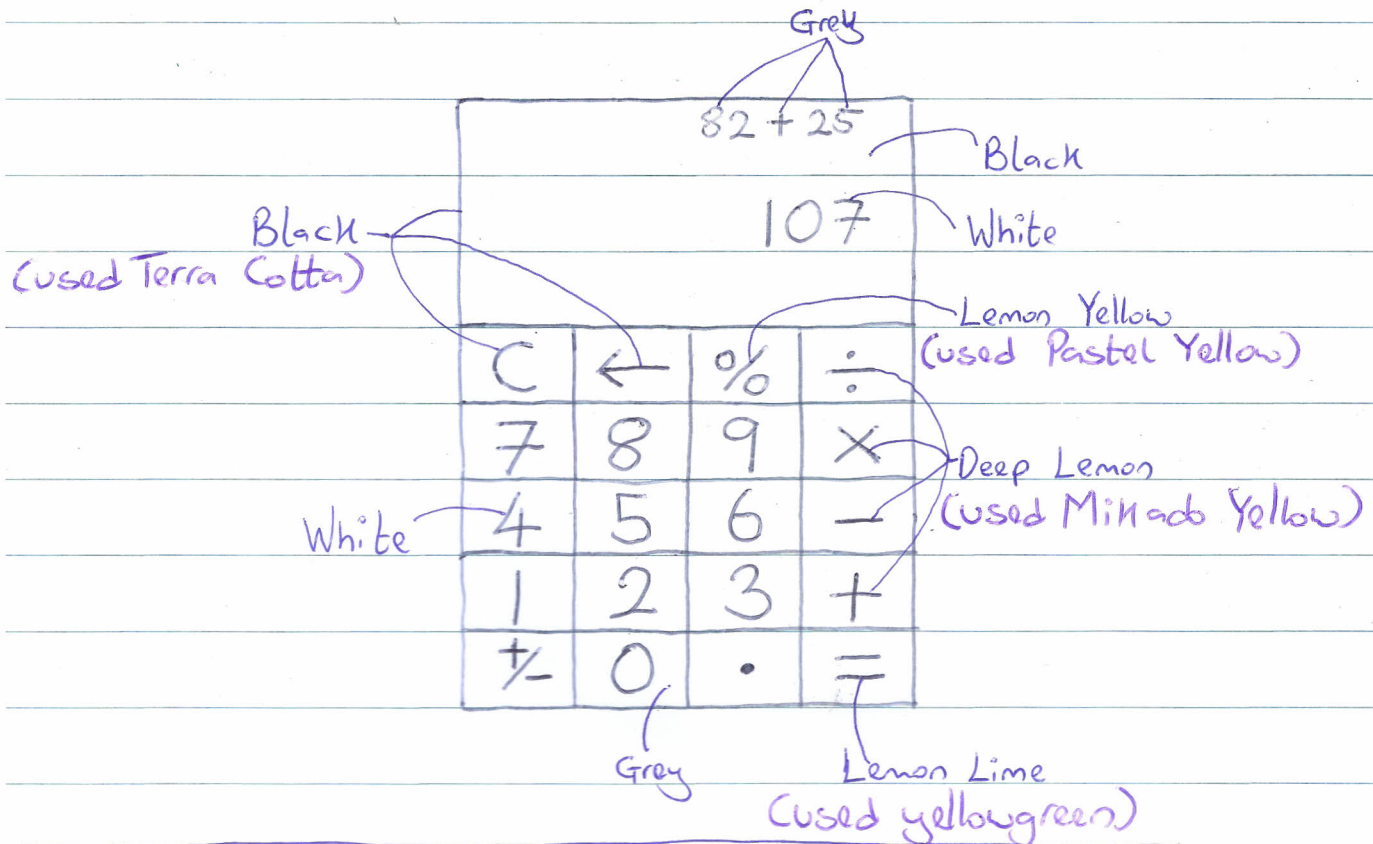 Grey
82 + 25
Black
107
White
Black
(used Terra Cotta)
Lemon Yellow
(used Pastel Yellow)
C ← % ÷
7 8 9 ×
Deep Lemon
(used Mikado Yellow)
4 5 6 −
White
1 2 3 +
+/- 0 . =
Grey
Lemon Lime
(used yellowgreen)